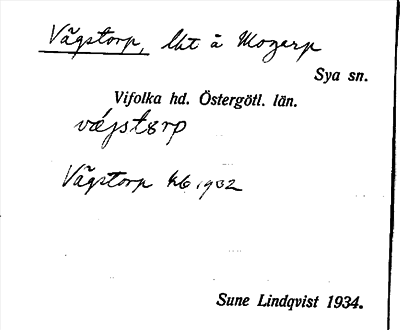 Vägstorp, lht å Mogarp
Sya sn.
Vifolka hd. Östergötl. län.
vǽjstɔrp
Vägstorp kb 1932
Sune Lindqvist 1934.